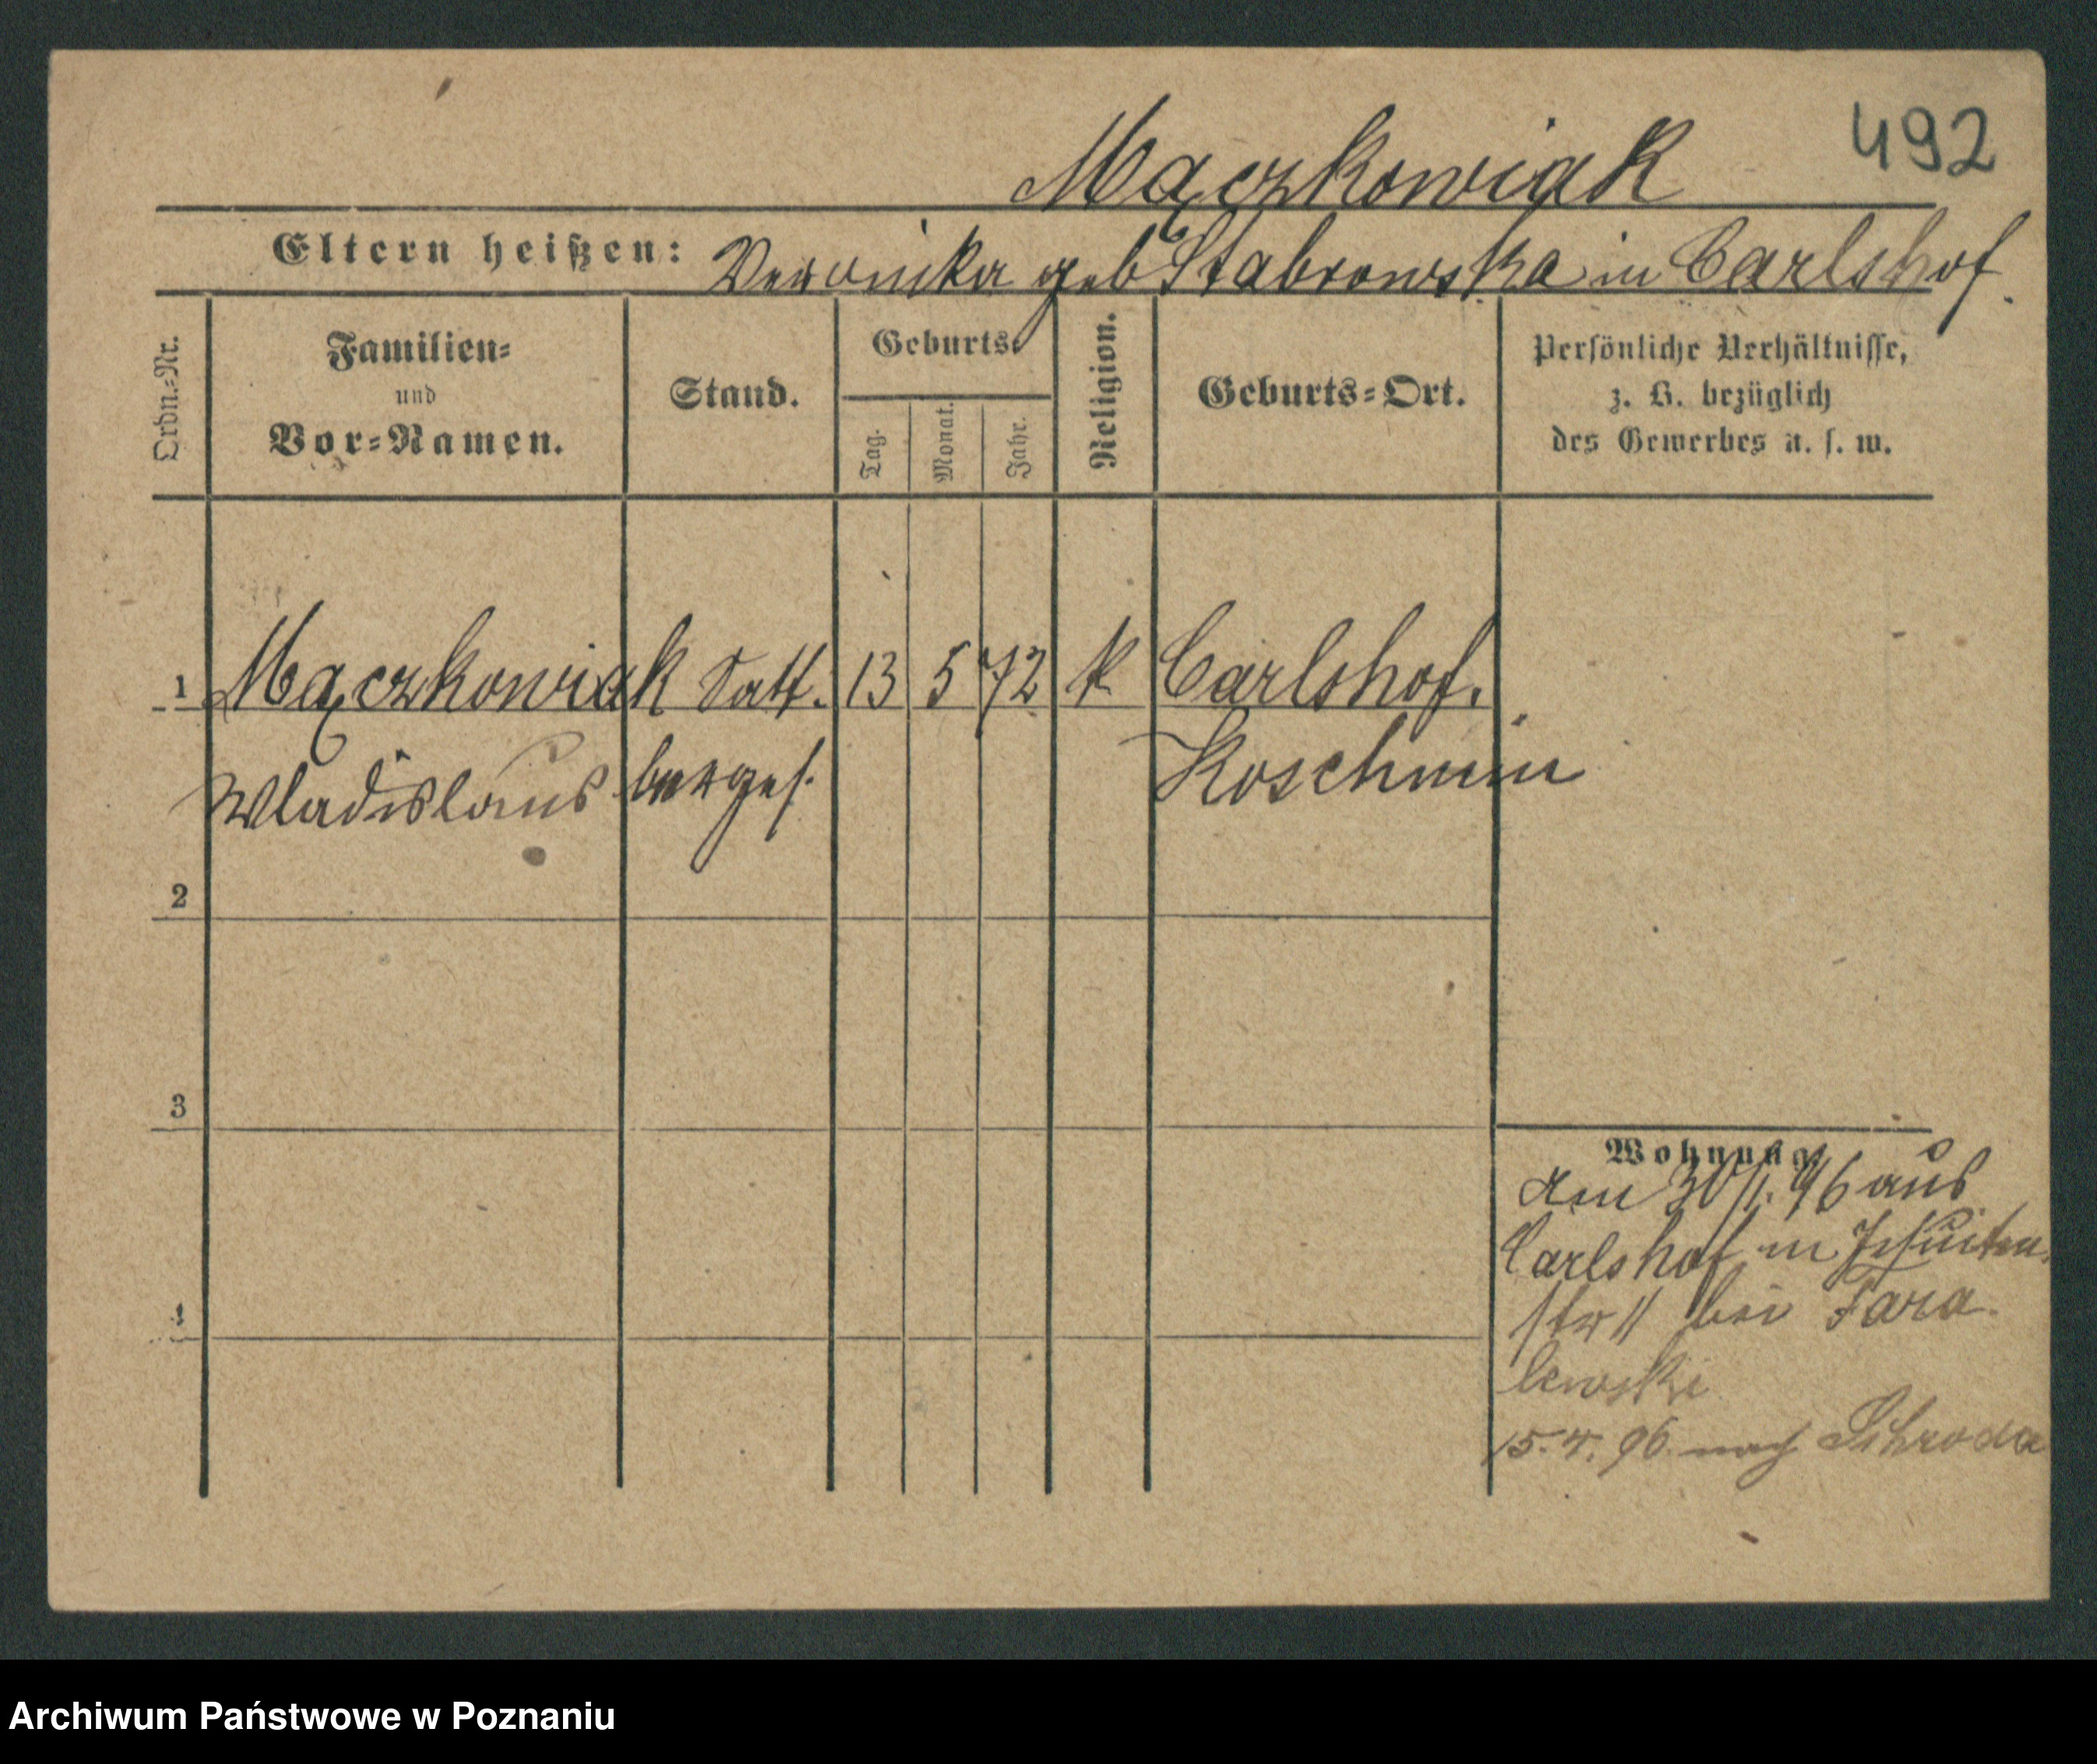 492
Mączkowiak
Eltern heißen: Veronika geb Stabrowska in Carlshof.
Ordn.=Nr.
Familien=
und
Vor=Namen.
Stand.
Geburts=
Tag.
Monat.
Jahr.
Religion.
Geburts=Ort.
Persönliche Verhältnisse,
z. B. bezüglich
des Gewerbes u. s. w.
1 Mączkowiak Satt. 13 5 72 k Carlshof.
Wladislaus berges. Koschmin
2
3
4
Wohnung
Am 30/1. 96 aus
Carlshof in Jesuiten
str 11 bei Fara
lewski
15. 4. 96 nach Schroda
Archiwum Państwowe w Poznaniu